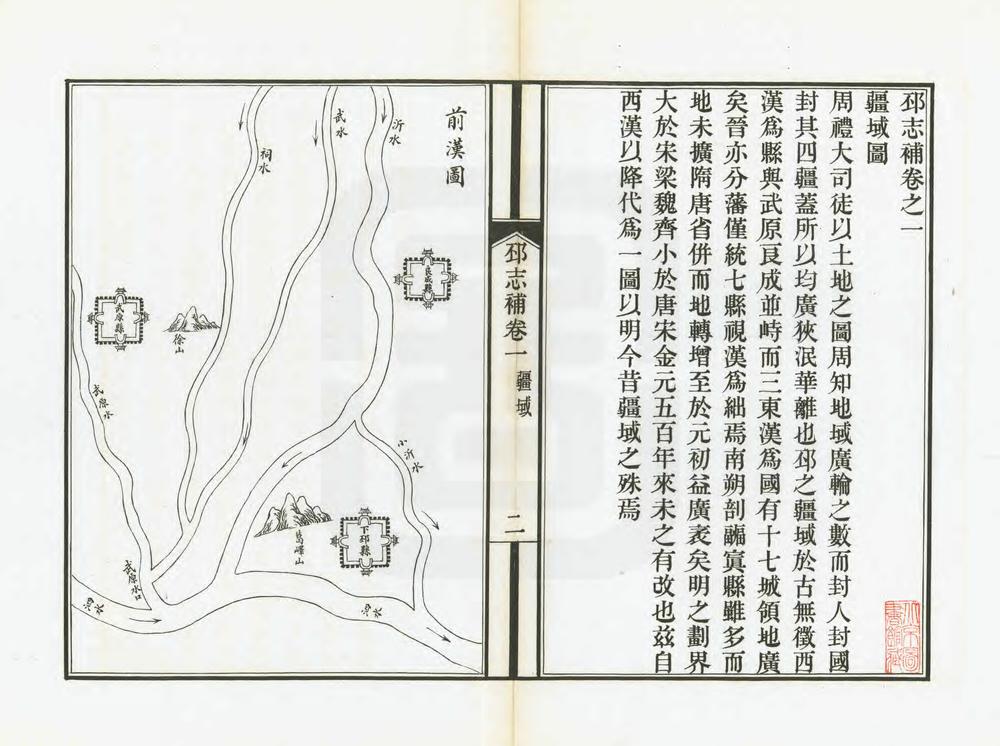 邳志補卷之一
疆域圖
周禮大司徒以土地之圖周知地域廣輪之數而封人封國
封其四疆蓋所以均廣狹泯華離也邳之疆域於古無徵西
漢爲縣與武原良成並峙而三東漢爲國有十七城領地廣
矣晉亦分藩僅統七縣視漢爲絀焉南朔剖寘縣雖多而
地未擴隋唐省併而地轉增至於元初益廣袤矣明之劃界
大於宋梁魏齊小於唐宋金元五百年來未之有改也茲自
西漢以降代爲一圖以明今昔疆域之殊焉
邳志補卷一
疆域
二
前漢圖
沂水
武水
祠水
良成縣
武原縣
徐山
武原水
小沂水
下邳縣
葛嶧山
武原水口
泗水
泗水